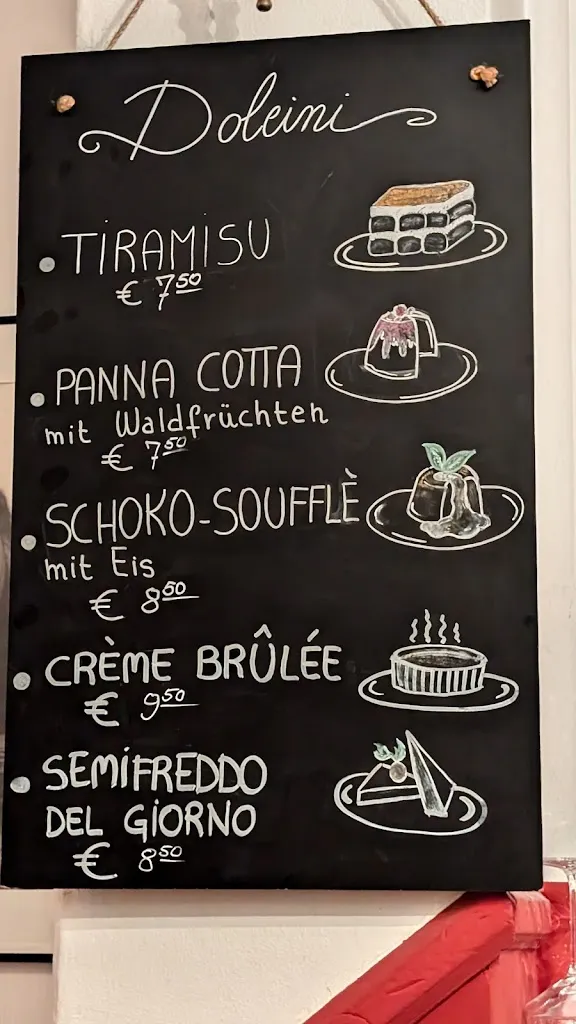 Dolcini
• TIRAMISU
€ 7⁵⁰
• PANNA COTTA
mit Waldfrüchten
€ 7⁵⁰
• SCHOKO-SOUFFLÈ
mit Eis
€ 8⁵⁰
• CRÈME BRÛLÉE
€ 9⁵⁰
• SEMIFREDDO
DEL GIORNO
€ 8⁵⁰